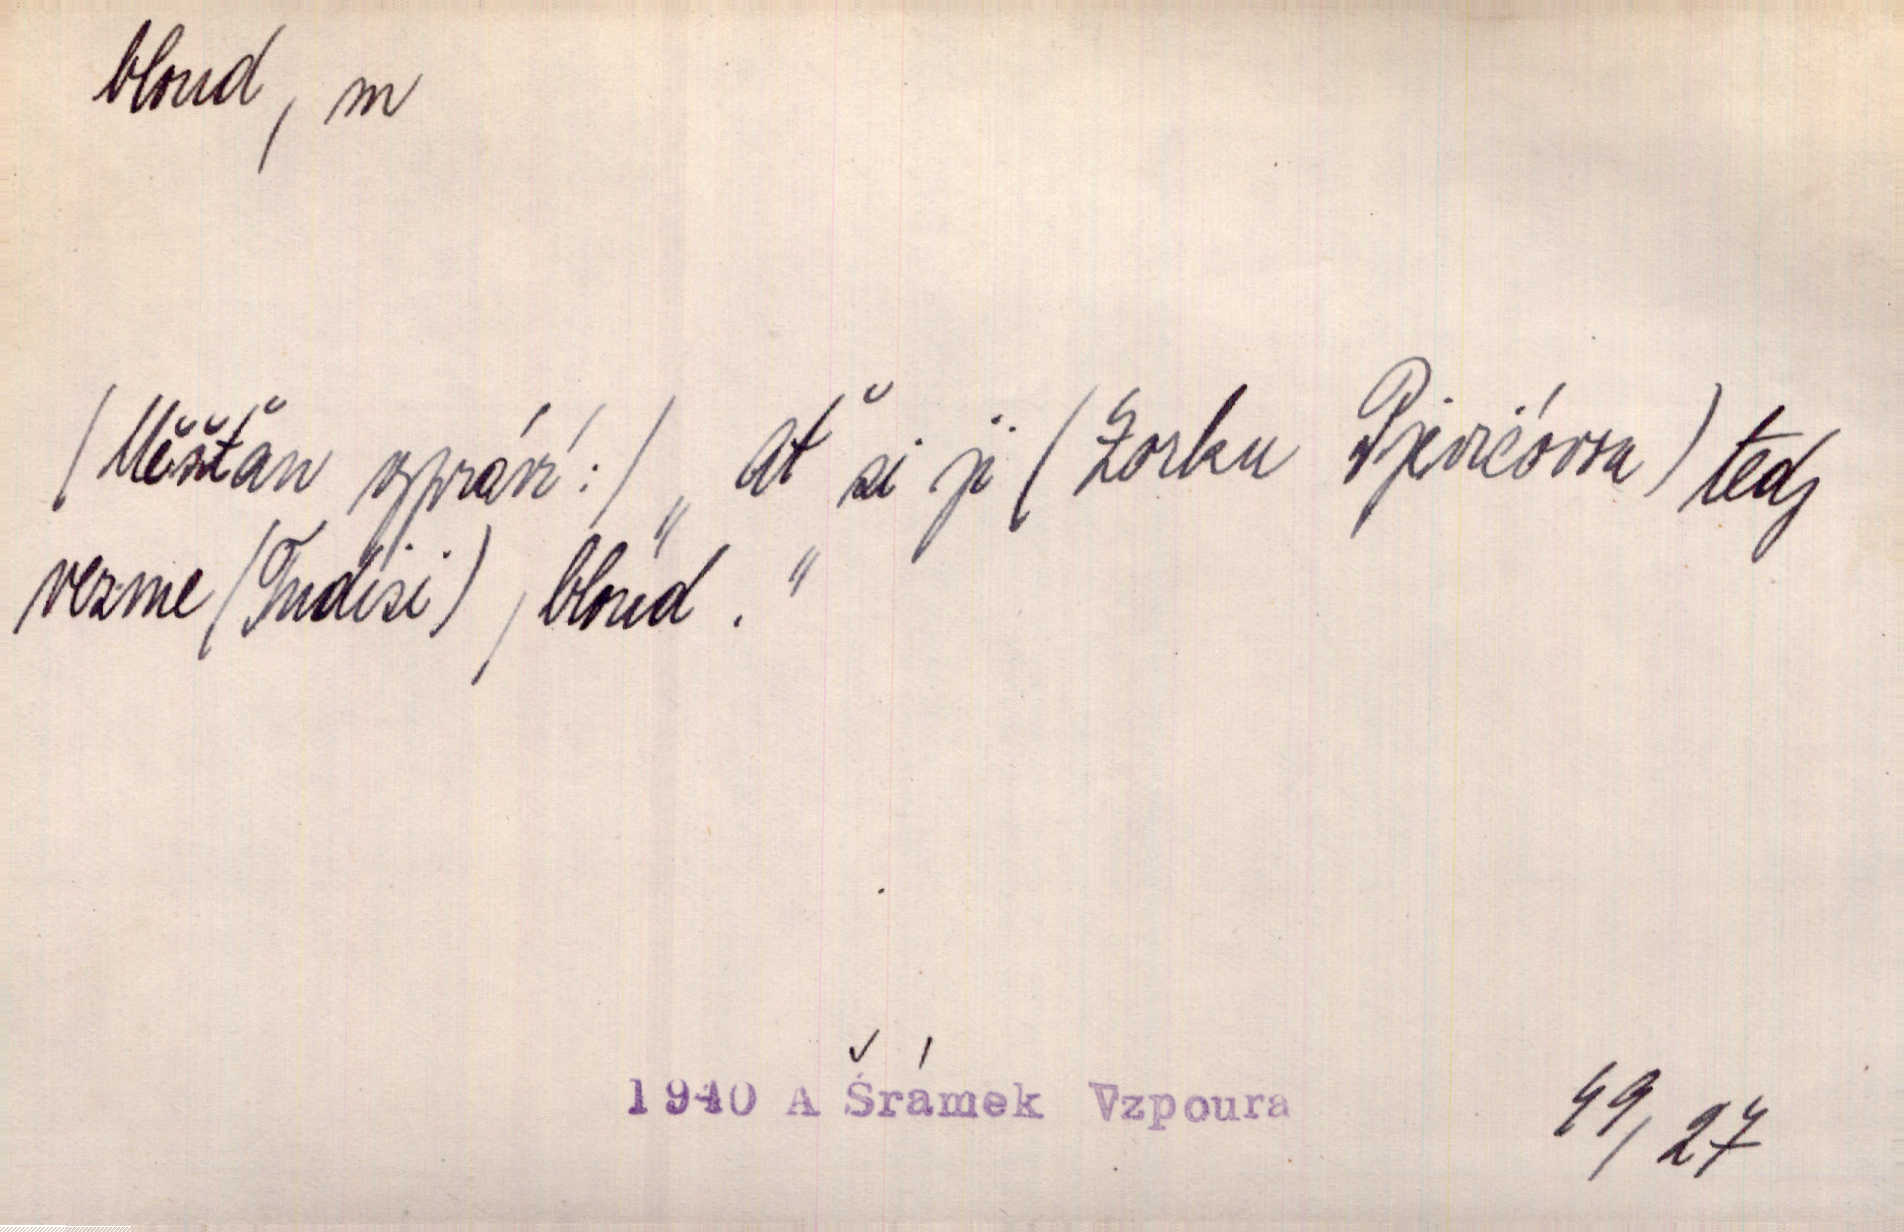 bloud, m
/Měšťan vypráví:/ „Ať si ji (Zorku Pjevićovou) tedy
vezme (Tudisi), bloud."
1910 A Šrámek Vzpoura
49, 27